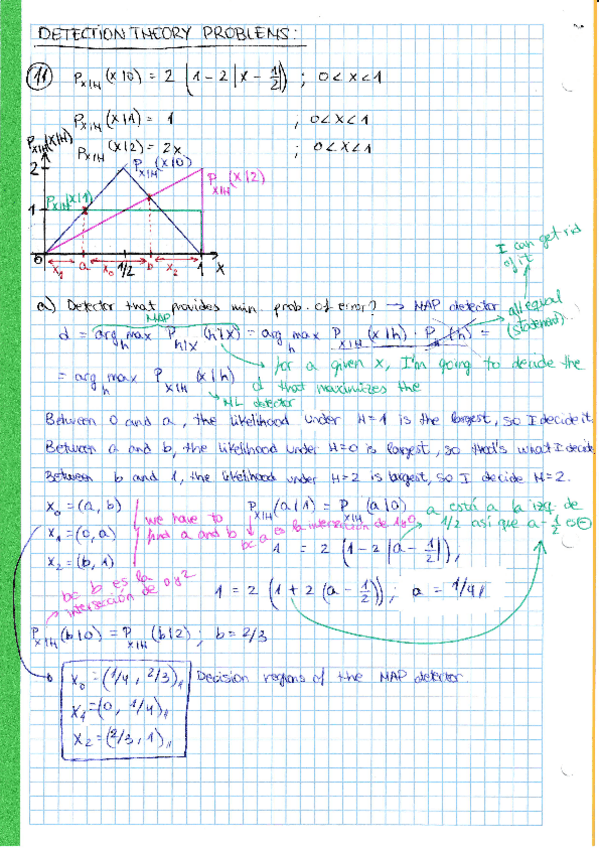 DETECTION THEORY PROBLEMS:
11 P_{X|H}(x|0) = 2 (1 - 2 |x - 1/2|) ; 0 < x < 1
P_{X|H}(x|1) = 1 , 0 < x < 1
P_{X|H}(x|2) = 2x ; 0 < x < 1
P_{X|H}(x|H)
P_{X|H}(x|0)
P_{X|H}(x|2)
2
P_{X|H}(x|1)
1
0 a 1/2 b 1 x
X_1 X_0 X_2
I can get rid
of it
a) Detector that provides min. prob. of error? → MAP detector
all equal
(statement).
MAP
d = arg max_h P_{h|x}(h|x) = arg max_h P_{X|H}(x|h) · P_H(h) =
for a given x, I'm going to decide the
d that maximizes the
= arg max_h P_{X|H}(x|h)
ML detector
Between 0 and a, the likelihood under H=1 is the largest, so I decide it.
Between a and b, the likelihood under H=0 is largest, so that's what I decide
Between b and 1, the likelihood under H=2 is largest, so I decide H=2.
X_0 = (a, b)
X_1 = (0, a)
X_2 = (b, 1)
we have to
find a and b
P_{X|H}(a|1) = P_{X|H}(a|0)
bc a es la intersección de 1 y 0
a está a la izq. de
1/2 así que a - 1/2 es ⊖
1 = 2 (1 - 2 |a - 1/2|),
bc b es la
intersección de 0 y 2
1 = 2 (1 + 2 (a - 1/2)) ; a = 1/4 //
P_{X|H}(b|0) = P_{X|H}(b|2) ; b = 2/3
X_0 = (1/4, 2/3) //
X_1 = (0, 1/4) //
X_2 = (2/3, 1) //
Decision regions of the MAP detector.